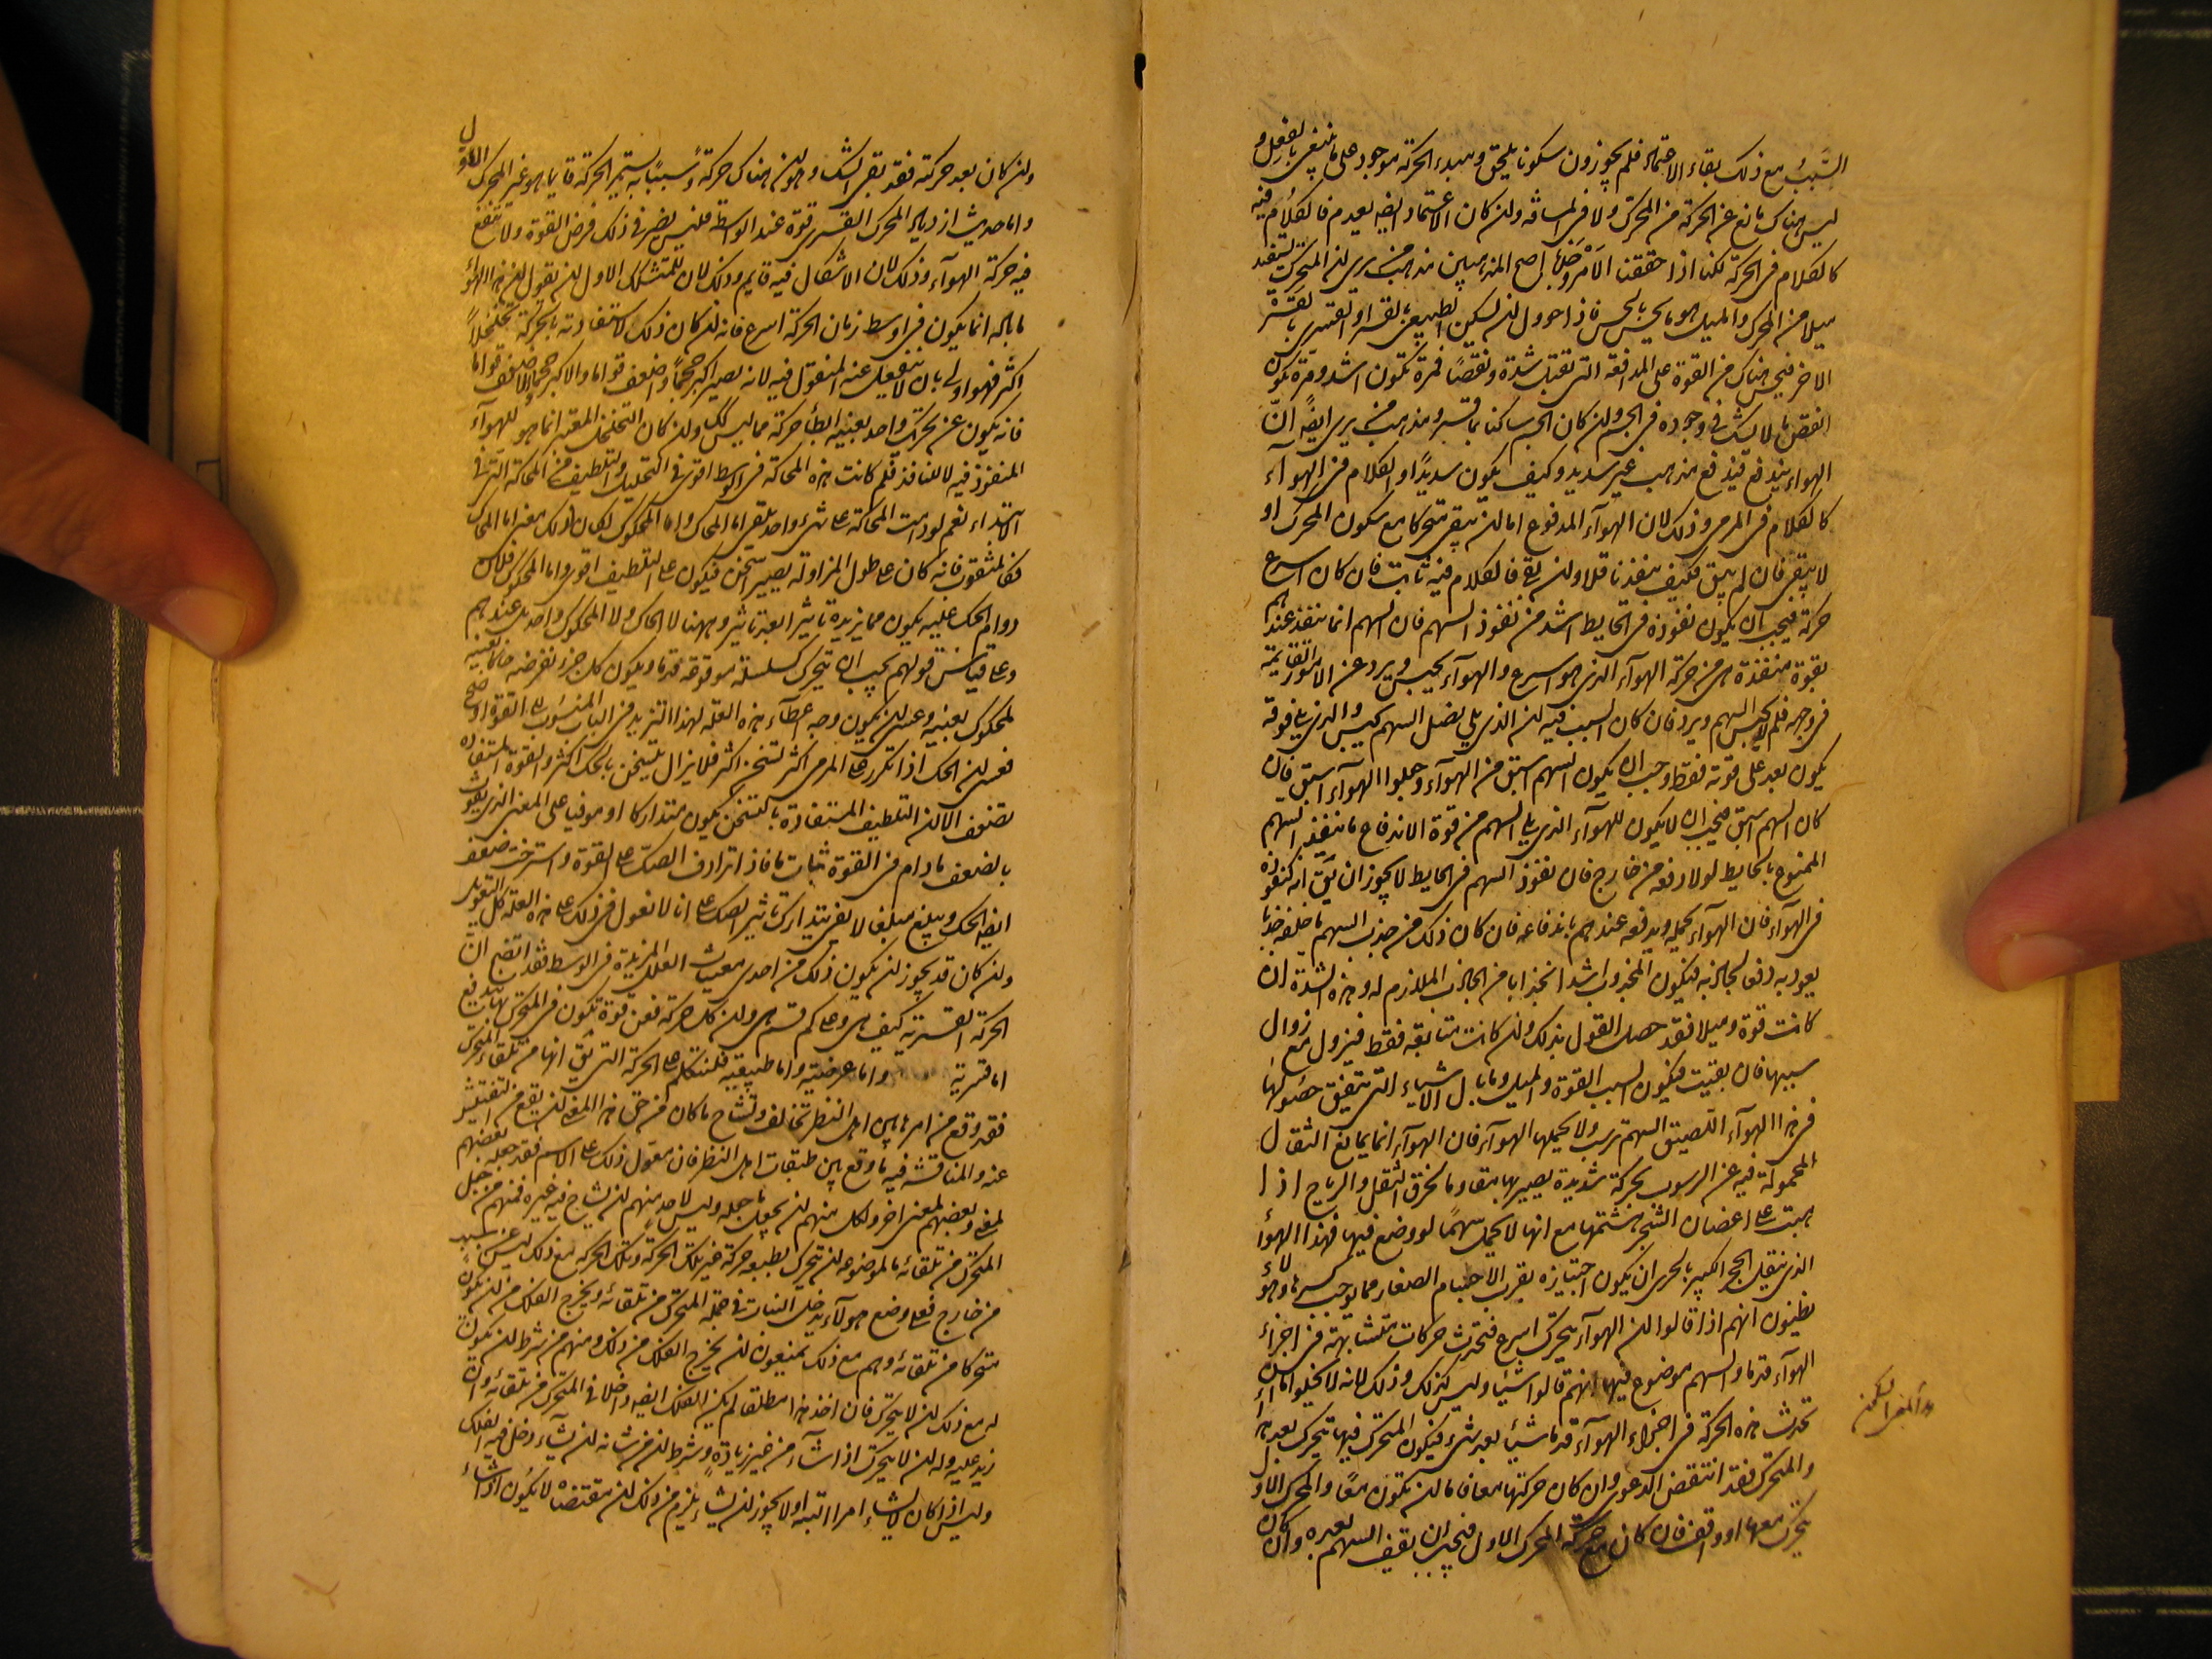 السبب مع ذلك بقاء الاعتماد فلم يجوزون سكونا يلحق ومبدء الحركة موجود على ما ينبغي بالفعل و
ليس هناك مانع عن الحركة من المحرك ولا في المسافة ولئن كان الاعتماد ايضا يعدم فالكلام فيه
كالكلام في الحركة لكنا اذا حققنا الامر وجدنا اصح المذهبين مذهب من يرى ان المتحرك يستفيد
ميلا من المحرك والميل هو ما يحس بالحس فاذا حوول ان يسكن الطبيعي بالقسر او القسري بالقسر
الاخر فيحس هناك من القوة على المدافعة التي تقبل شدة ونقصا فمرة تكون اشد ومرة تكون
انقص مما لا يشك في وجوده في الجسم وان كان الجسم ساكنا بالقسر ومذهب من يرى ايضا انّ
الهواء يندفع فيدفع مذهب غير سديد وكيف يكون سديدا والكلام في الهواء
كالكلام في المرمي وذلك لان الهواء المدفوع اما ان يبقى متحركا مع سكون المحرك او
لا يبقى فان لم يبق فكيف ينفذ ناقلا وان بقي فالكلام فيه ثابت فان كان اسرع
حركة فيجب ان يكون نفوذه في الحايط اشد من نفوذ السهم فان السهم انما ينفذ عندهم
بقوة منفذة هي من حركة الهواء الذي هو اسرع والهواء يحبس ويرد عن الامور القايمة
في وجهه فلم لا يحبس السهم ويرد فان كان السبب فيه ان الذي يلي نصل السهم يحبس والذي يلي فوقه
يكون بعد على قوته فقط وجب ان يكون السهم اسبق من الهواء وجعلوا الهواء اسبق فان
كان السهم اسبق فيجب ان لا يكون للهواء الذي يلي السهم من قوة الاندفاع ما ينفذ السهم
الممنوع بالحايط لولا دفعه من خارج فان نفوذ السهم في الحايط لا يجوز ان يق انه كنفوذه
في الهواء فان الهواء يحمله ويدفعه عندهم باندفاعه فان كان ذلك من جذب السهم ما خلفه جذبا
يعود به دفعا لجاذبه فيكون المجذوب اشد انجذابا من الجاذب الملازم له وهذه الشدة ان
كانت قوة وميلا فقد حصل القول بذلك وان كانت متابعة فقط فيزول مع زوال
سببها فان بقيت فيكون السبب القوة والميل وما بال الاشياء التي يتفق حصولها
في هذا الهواء اللصيق السهم ترسب ولا يحملها الهواء فان الهواء انما يمانع الثقال
المحمولة فيه عن الرسوب بحركة شديدة يصير بها مقاوما لخرق الثقل والرياح اذا
هبت على اغصان الشجر هشمتها مع انها لا تحمل سهما لو وضع فيها فهذا الهواء
الذي ينقل الحجر الكبير بالحرى ان يكون اجتيازه بقرب الاجسام الصغار مما يوجب كسرها وهؤلاء
يظنون انهم اذا قالوا ان الهواء يتحرك اسرع فتحدث حركات متشابهة في اجزاء
الهواء قدما والسهم موضوع فيها انهم قالوا شيئا وليس كذلك وذلك لانه لا يخلوا اما ان
تحدث هذه الحركة في اجزاء الهواء قدما شيئا بعد شيء فيكون المتحرك فيها يتحرك بعد
والمتحرك فقد انتقض الدعوى وان كان حركتها معا فاما ان تكون معا والمحرك الاول
يتحرك معها او وقف فان كان مع حركة المحرك الاول فيجب ان يقف السهم بعده وان كان
وان كان بعد حركته فقد بقي الشك وهو ان هناك حركة وسببا به يستمر الحركة قايما هو غير المحرك الاول
واما حديث ازدياد المحرك القسري قوة عند الواسطة فليس يضر في ذلك فرض القوة ولا تنفع
فيه حركة الهواء وذلك لان الاشكال فيه قايم وذلك لان للمتشكك الاول ان يقول ان هذا الهواء
ما باله انما يكون في اوسط زمان الحركة اسرع فانه ان كان ذلك لاستفادته بالحركة تخلخلا
اكثر فهو اولى بان لا ينفعل عنه المنقول فيه لانه يصير اكبر حجما واضعف قواما والاكبر حجما والاضعف قواما
فانه يكون عن تحريك واحد بعينه ابطأ حركة مما ليس كك وان كان التخلخل المعتبر انما هو للهواء
المنفوذ فيه لا للنافذ فلم كانت هذه المحاكة في الوسط اقوى في التحليل والتلطيف من المحاكة التي في
الابتداء نعم لو دامت المحاكة على شيء واحد يلقى اما المحاك واما المحكوك لكان لذلك معنى اما المحاك
فكالمثقوب فانه كان على طول المزاولة يصير اسخن فيكون على التلطيف اقوى واما المحكوك فلان
دوام الحك عليه يكون مما يزيده تاثيرا بعد تاثير وههنا لا الحاك ولا المحكوك واحد بل عندهم
وعلى قياس قولهم يجب ان يتحرك كسلسلة مدفوقة قدما ويكون كل جزء نفرضه حاكا بعينه
لمحكوك بعينه وعسى ان يكون وجه اعطاء هذه العلة لهذا التزيد في الباب المنسوب الى القوة اوضح
فعسى ان الحك اذا تكرر على المرمي اكثر تسخن اكثر فلا يزال يتسخن بالحك اكثر والقوة المستفادة
تضعف الا ان التلطيف المستفادة بالتسخن يكون متداركا او موفيا على المعنى الذي يفوت
بالضعف ما دام في القوة ثبات ما فاذا ترادف الصك على القوة واسترخت ضعف
ايضا الحك ويبلغ مبلغا لا يفي بتدارك تاثير الصك على انا لا نعول في ذلك على هذه العلة كل التعويل
وان كان قد يجوز ان يكون ذلك من احدى معينات العلل المزيدة في الوسط فقد اتضح انّ
الحركة القسرية كيف هي وعلى كم قسم هي وان كل حركة فعن قوة تكون في المتحرك بها يندفع
اما قسرية واما عرضية واما طبيعية فلنتكلم على الحركة التي يق انها من تلقاء المتحرك
فقد وقع في امرها بين اهل النظر تخالف وتشاح ما كان من حق هذا المعنى ان يقع من التفتيش
عنه والمناقشة فيه ما وقع بين طبقات اهل النظر فان مقول ذلك على الاسم فقد جعله بعضهم
لمعنى وبعضهم لمعنى اخر ولكل منهم ان يجعل ما جعله وليس لاحد منهم ان يشاح فيه غيره فمنهم من جعل
المتحرك من تلقائه ما لموضوعه ان يتحرك بطبعه حركة غير تلك الحركة وتلك الحركة مع ذلك ليس عن سبب
من خارج فعلى وضع هؤلاء يدخل النبات في جملة المتحرك من تلقائه ويخرج الفلك من ان يكون
متحركا من تلقائه وهم مع ذلك يمنعون ان يخرج الفلك من ذلك ومنهم من شرط ان يكون
له مع ذلك ان لا يتحرك فان اخذ هذا مطلقا لم يكن الفلك ايضا داخلا في المتحرك من تلقائه وان
زيد عليه وله ان لا يتحرك اذا شاء من غير زيادة وشرط ان من شانه ان يشاء دخل فيه الفلك
وليس اذا كان لا يشاء امرا البتة او لا يجوز ان يشاء يلزم من ذلك ان مقتضاه لا يكون اذا شاء